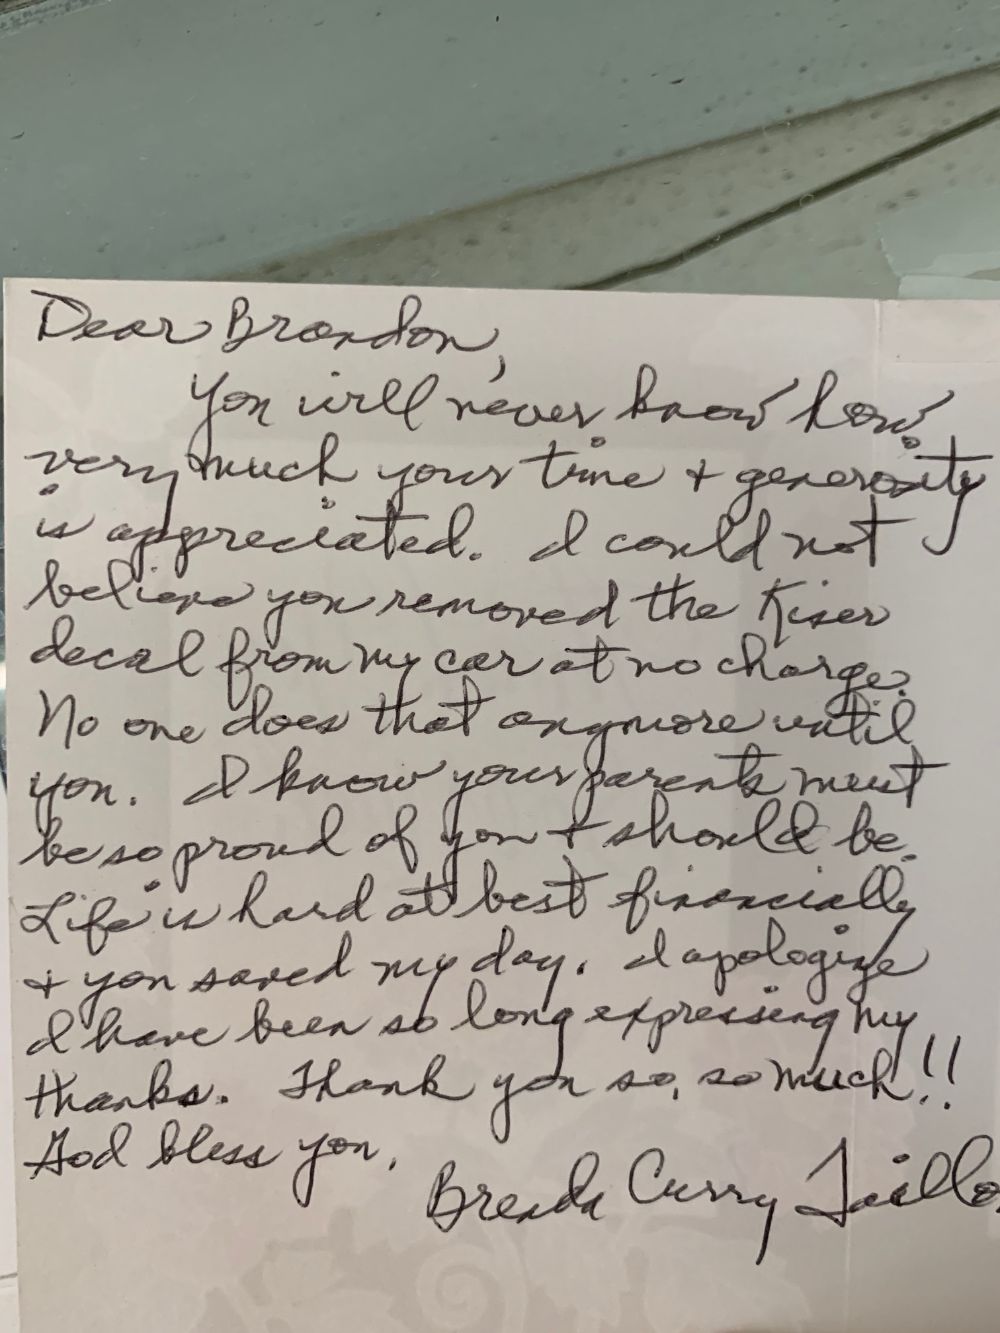 Dear Brandon,
You will never know how
very much your time + generosity
is appreciated. I could not
believe you removed the Kiser
decal from my car at no charge.
No one does that anymore until
you. I know your parents must
be so proud of you + should be.
Life is hard at best financially
+ you saved my day. I apologize
I have been so long expressing my
thanks. Thank you so, so much!!
God bless you.
Brenda Curry